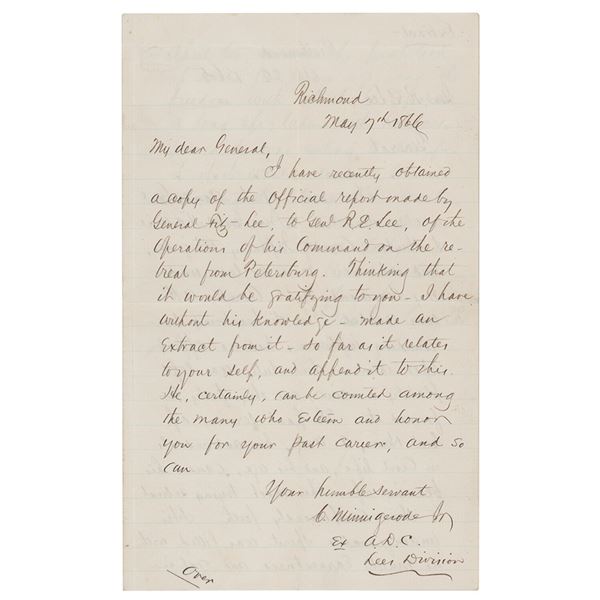 Richmond
May 7th 1866
My dear General,
I have recently obtained
a copy of the official report made by
General Fitz Lee, to Genl R. E. Lee, of the
Operations of his Command on the re-
treat from Petersburg. Thinking that
it would be gratifying to you - I have
without his knowledge - made an
Extract from it - so far as it relates
to your self, and append it to this.
He, certainly, can be counted among
the many who Esteem and honor
you for your past career, and so
can
Your humble servant
C. Minnigerode Jr
Ex A.D.C.
Lees Division
Over